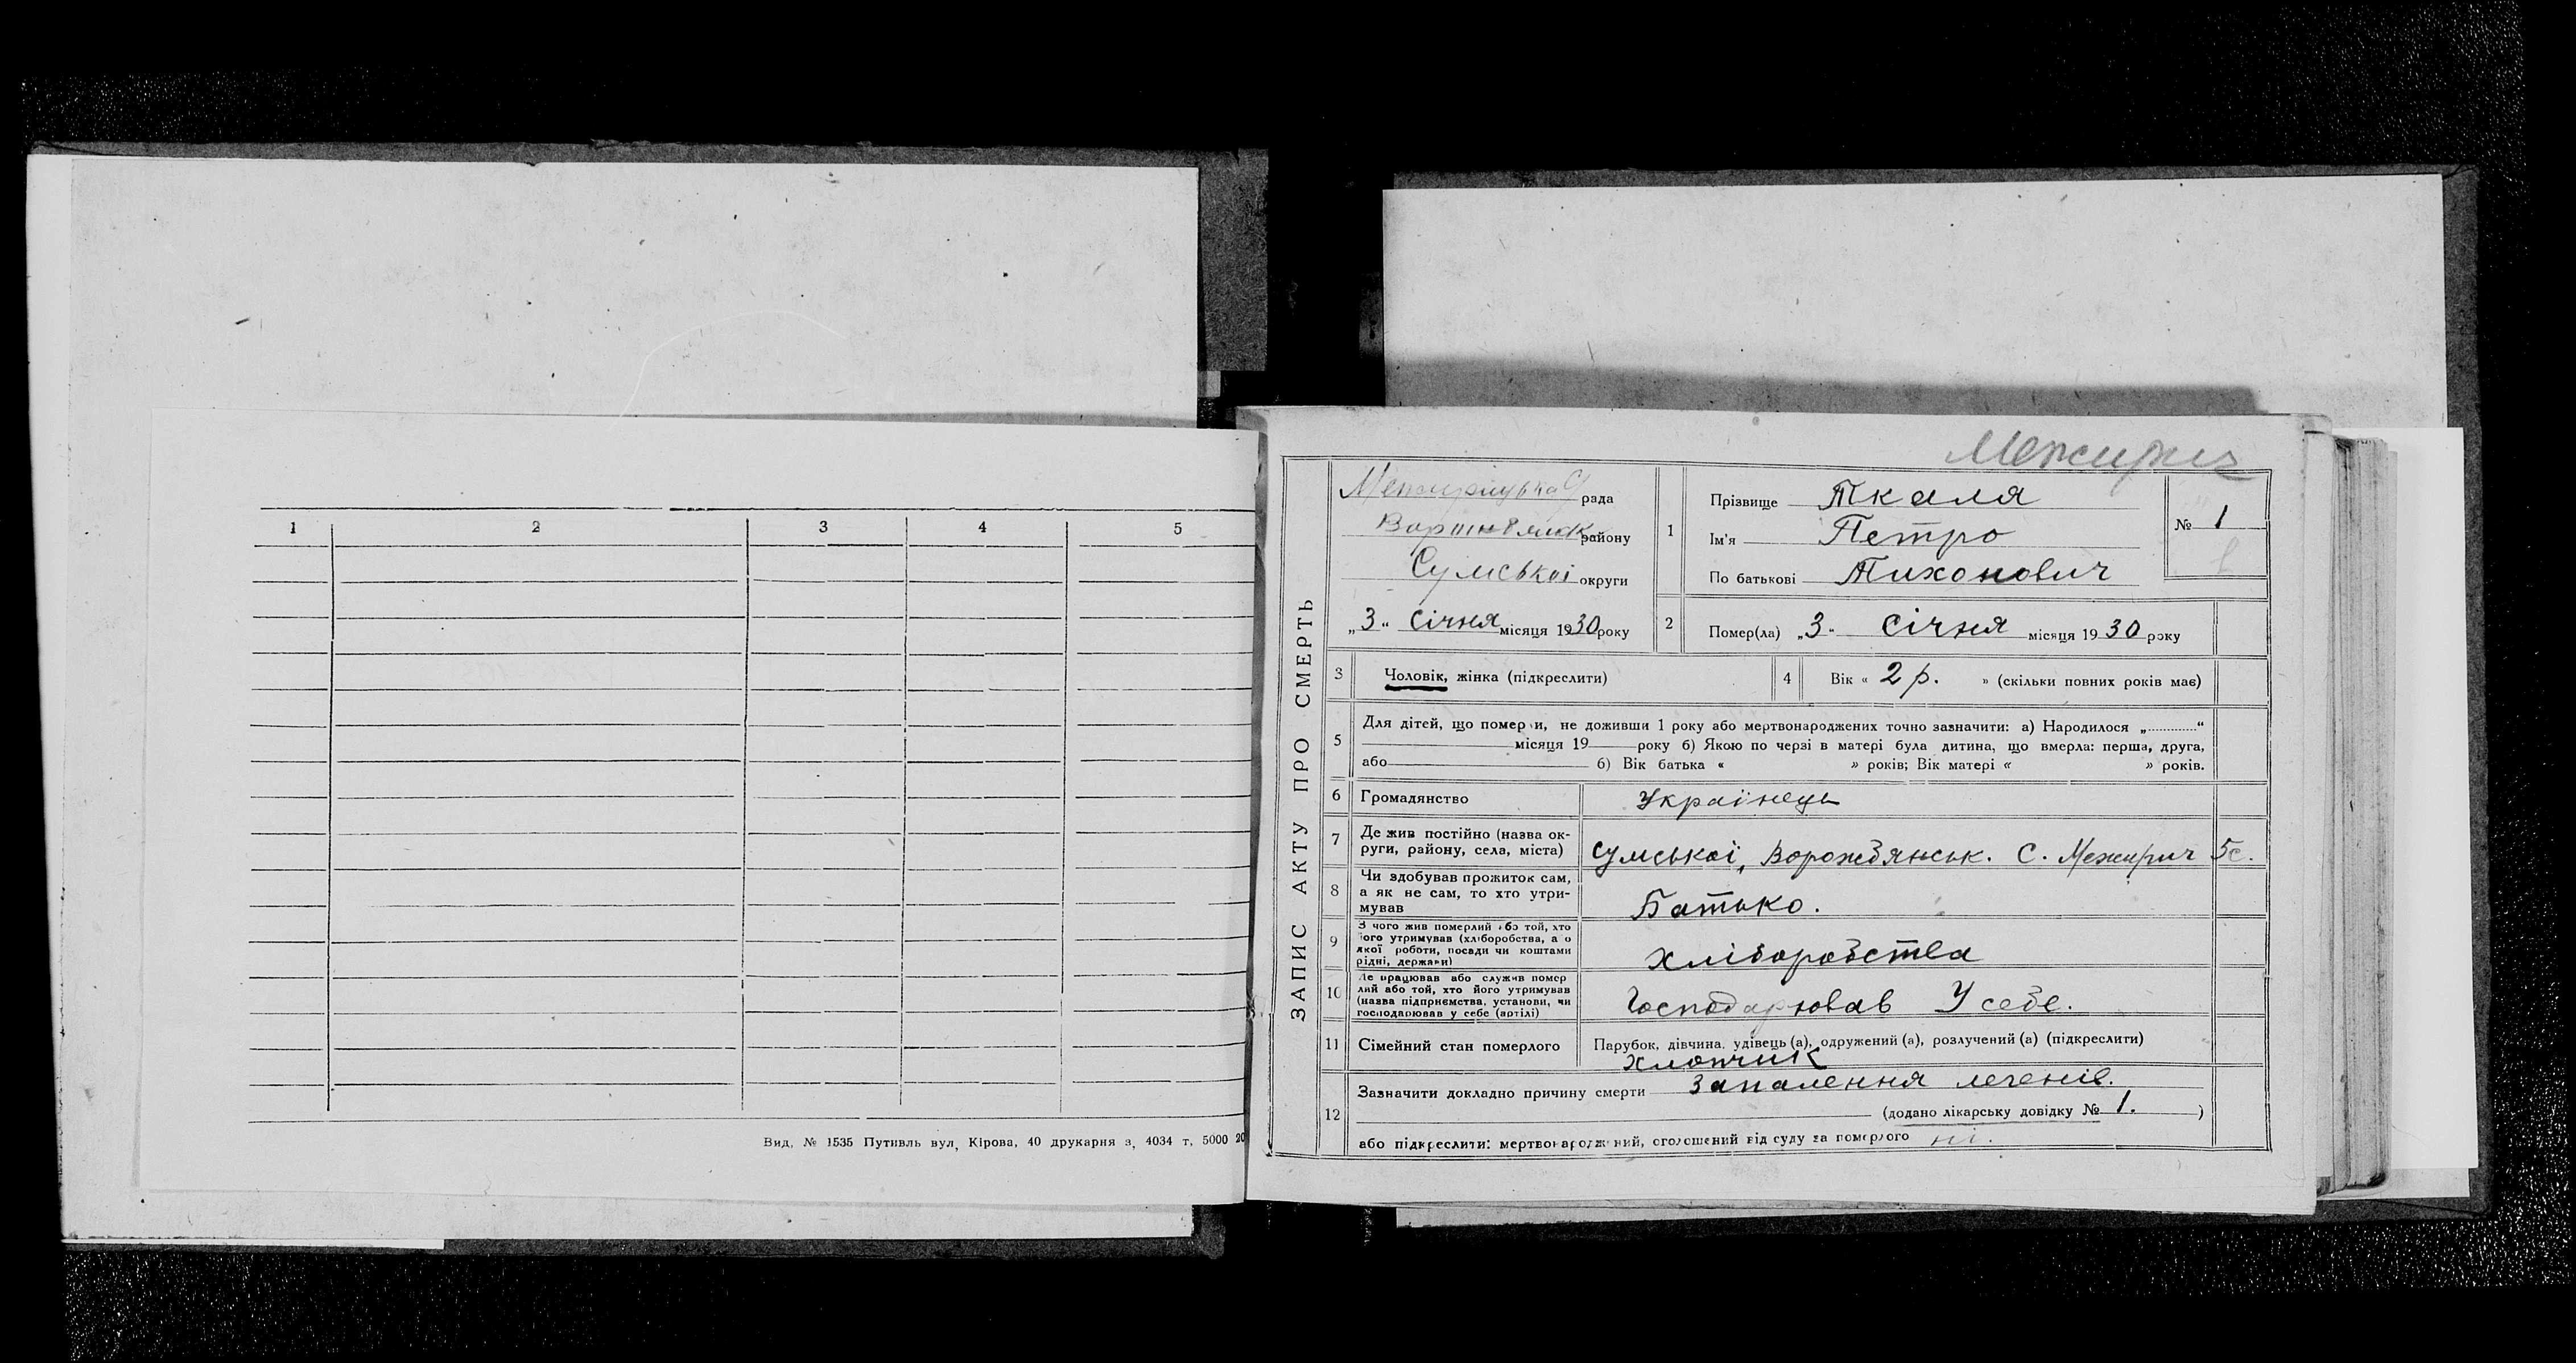 1 2 3 4 5
Вид. № 1535 Путивль вул. Кірова, 40 друкарня з. 4034 т. 5000 20
Межирич
ЗАПИС АКТУ ПРО СМЕРТЬ
Межиріцька рада
району
Сумської округи
„3“ Січня місяця 1930 року
1 Прізвище Ткаля
Ім'я Петро
По батькові Тихонович
№ 1
2 Помер(ла) „3“ Січня місяця 1930 року
3 Чоловік, жінка (підкреслити)
4 Вік « 2 р. » (скільки повних років має)
5 Для дітей, що померли, не доживши 1 року або мертвонароджених точно зазначити: а) Народилося „............“
місяця 19 року б) Якою по черзі в матері була дитина, що вмерла: перша, друга,
або б) Вік батька « » років; Вік матері « » років.
6 Громадянство Українець
7 Де жив постійно (назва ок-
руги, району, села, міста) Сумської, Ворожбянськ. С. Межирич 5с.
8 Чи здобував прожиток сам,
а як не сам, то хто утри-
мував Батько.
9 З чого жив померлий або той, хто
його утримував (хліборобства, а о
якої роботи, посади чи коштами
рідні, держави) хліборобства
10 Де працював або служив помер
лий або той, хто його утримував
(назва підприємства, установи, чи
господарював у себе (артілі) Господарював У себе.
11 Сімейний стан померлого Парубок, дівчина, удівець (а), одружений (а), розлучений (а) (підкреслити)
хлопчик
12 Зазначити докладно причину смерти Запалення легенів.
(додано лікарську довідку № 1. )
або підкреслити: мертвонароджений, оголошений від суду за померлого ні.